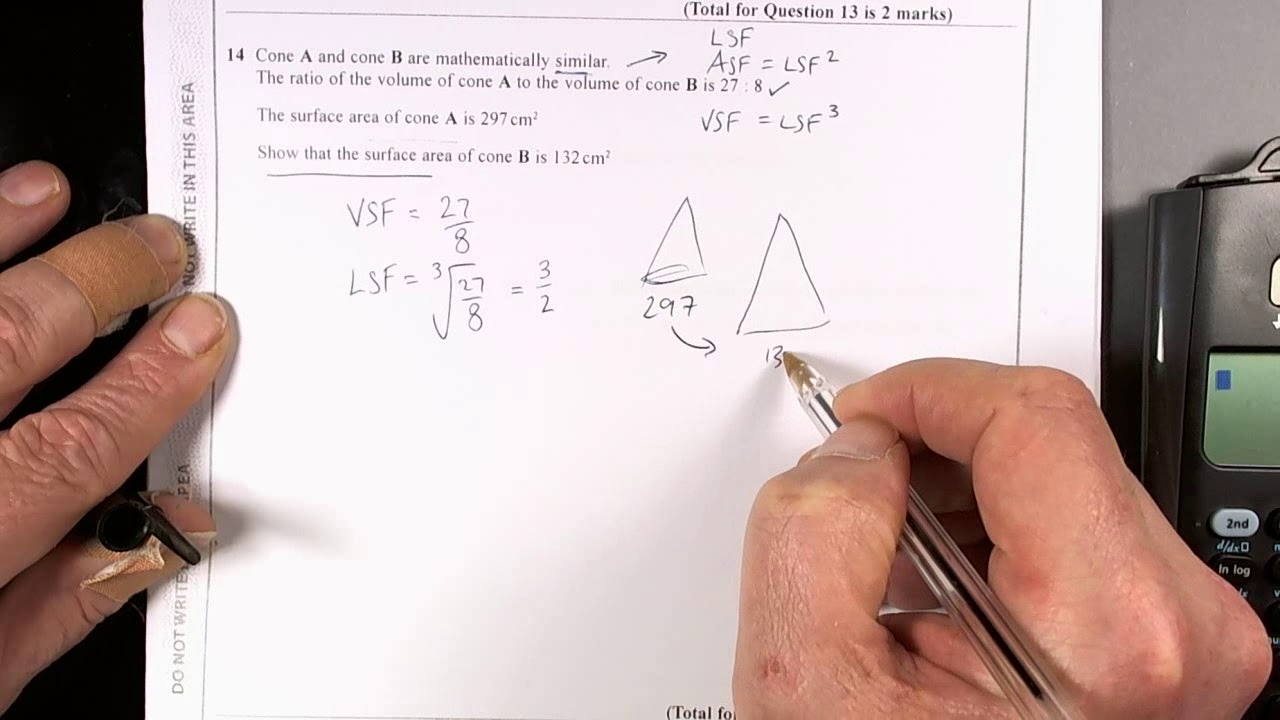 (Total for Question 13 is 2 marks)
14 Cone A and cone B are mathematically similar. → LSF
ASF = LSF²
The ratio of the volume of cone A to the volume of cone B is 27 : 8 ✓
The surface area of cone A is 297 cm²
VSF = LSF³
Show that the surface area of cone B is 132 cm²
VSF = 27/8
LSF = ³√27/8 = 3/2
297
13
DO NOT WRITE IN THIS AREA
DO NOT WRITE
AREA
(Total fo
2nd
d/dx
ln log